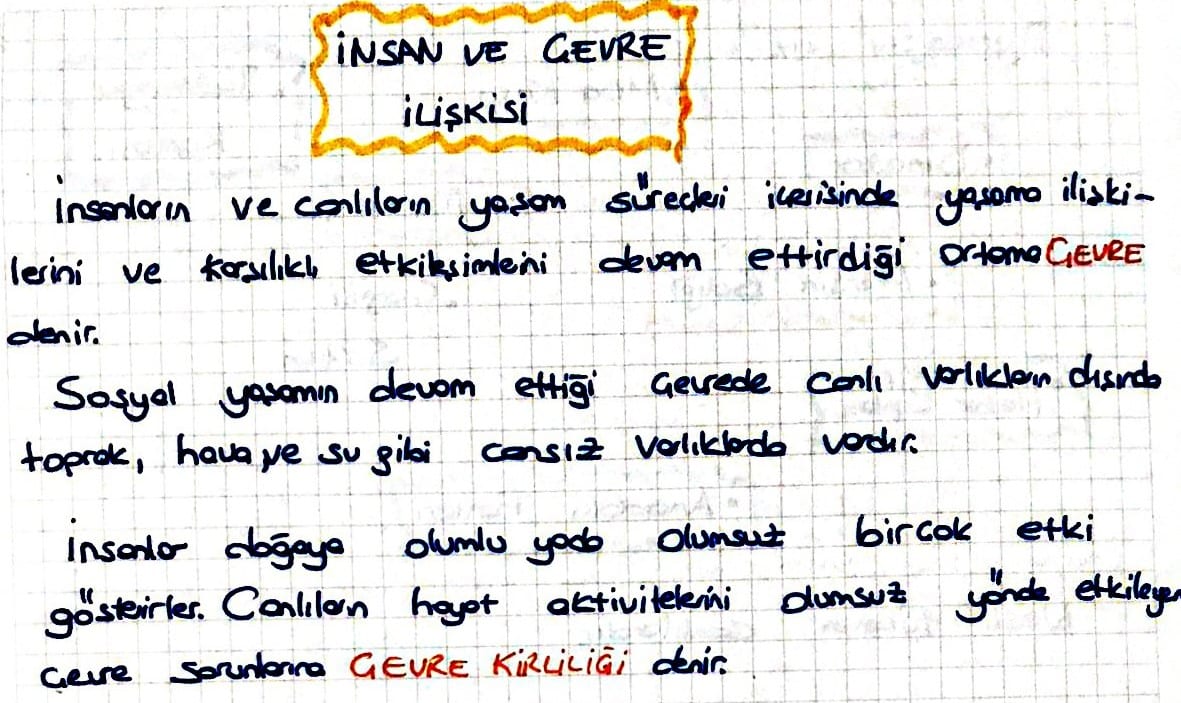 İNSAN VE ÇEVRE
İLİŞKİSİ
İnsanların ve canlıların yaşam süreçleri içerisinde yaşama ilişki-
lerini ve karşılıklı etkileşimleini devam ettirdiği ortama ÇEVRE
denir.
Sosyal yaşamın devam ettiği çevrede canlı varlıkların dışında
toprak, hava ve su gibi cansız varlıklarda vardır.
İnsanlar doğaya olumlu yada olumsuz birçok etki
gösterirler. Canlıların hayat aktivitelerini olumsuz yönde etkileyen
çevre sorunlarına ÇEVRE KİRLİLİĞİ denir.